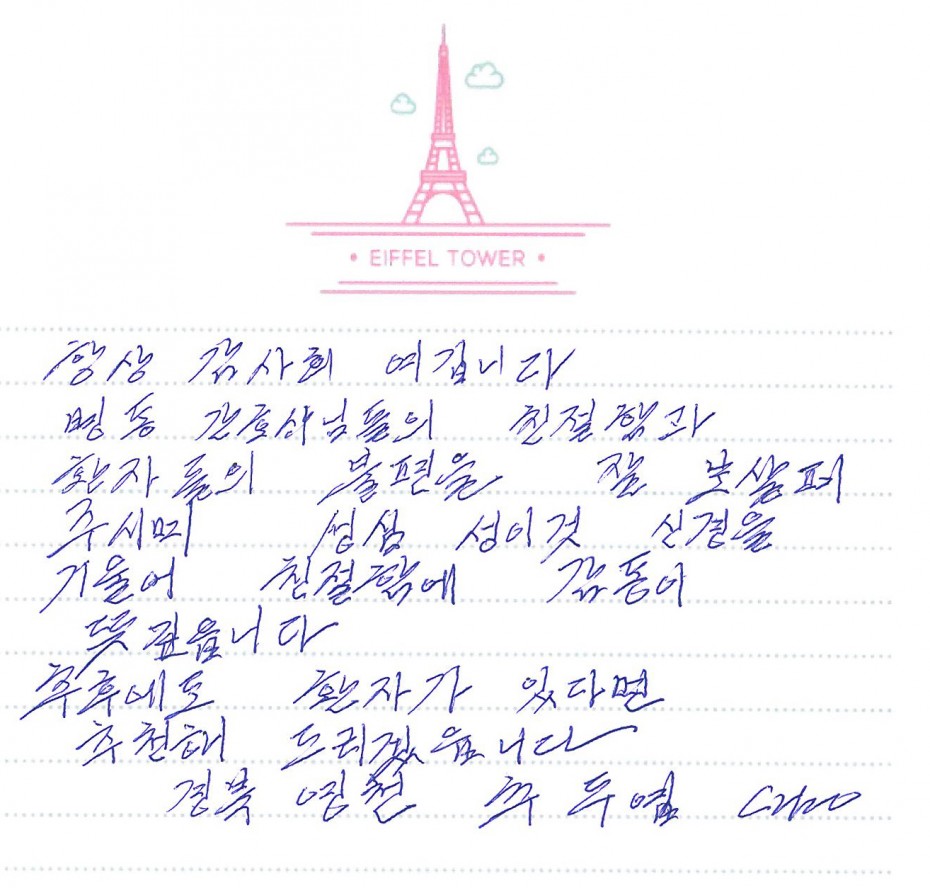 • EIFFEL TOWER •
항상 감사회 여김니다
병동 간호사님들의 친절함과
환자들의 불편을 잘 보살펴
주시며 성심 성이것 신경을
기울어 친절함에 감동이
뜻깊읍니다
추후에도 환자가 있다면
추천해 드리겠읍니다
경북 영천